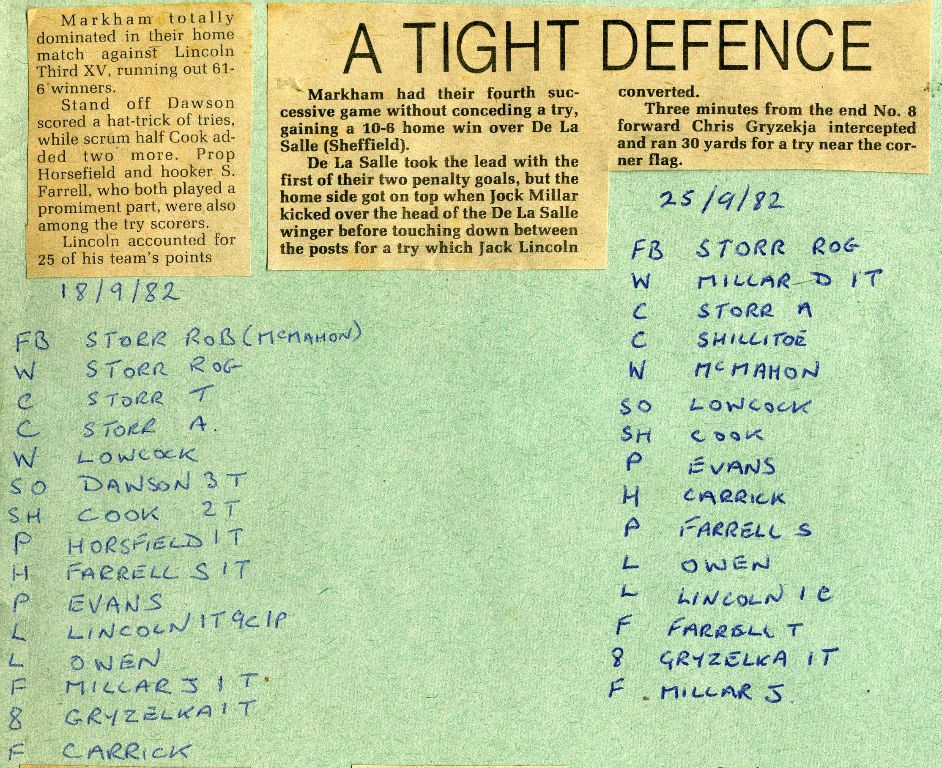 Markham totally
dominated in their home
match against Lincoln
Third XV, running out 61-
6 winners.
Stand off Dawson
scored a hat-trick of tries,
while scrum half Cook ad-
ded two more. Prop
Horsefield and hooker S.
Farrell, who both played a
promiment part, were also
among the try scorers.
Lincoln accounted for
25 of his team's points
18/9/82
FB STORR ROB (McMAHON)
W STORR ROG
C STORR T
C STORR A.
W LOWCOCK
SO DAWSON 3 T
SH COOK 2T
P HORSFIELD 1 T
H FARRELL S 1 T
P EVANS
L LINCOLN 1T 9C 1P
L OWEN
F MILLAR J 1 T
8 GRYZELKA 1 T
F CARRICK
A TIGHT DEFENCE
Markham had their fourth suc-
cessive game without conceding a try,
gaining a 10-6 home win over De La
Salle (Sheffield).
De La Salle took the lead with the
first of their two penalty goals, but the
home side got on top when Jock Millar
kicked over the head of the De La Salle
winger before touching down between
the posts for a try which Jack Lincoln
converted.
Three minutes from the end No. 8
forward Chris Gryzekja intercepted
and ran 30 yards for a try near the cor-
ner flag.
25/9/82
FB STORR ROG
W MILLAR D 1T
C STORR A
C SHILLITOE
W McMAHON
SO LOWCOCK
SH COOK
P EVANS
H CARRICK
P FARRELL S
L OWEN
L LINCOLN 1 C
F FARRELL T
8 GRYZELKA 1T
F MILLAR J.